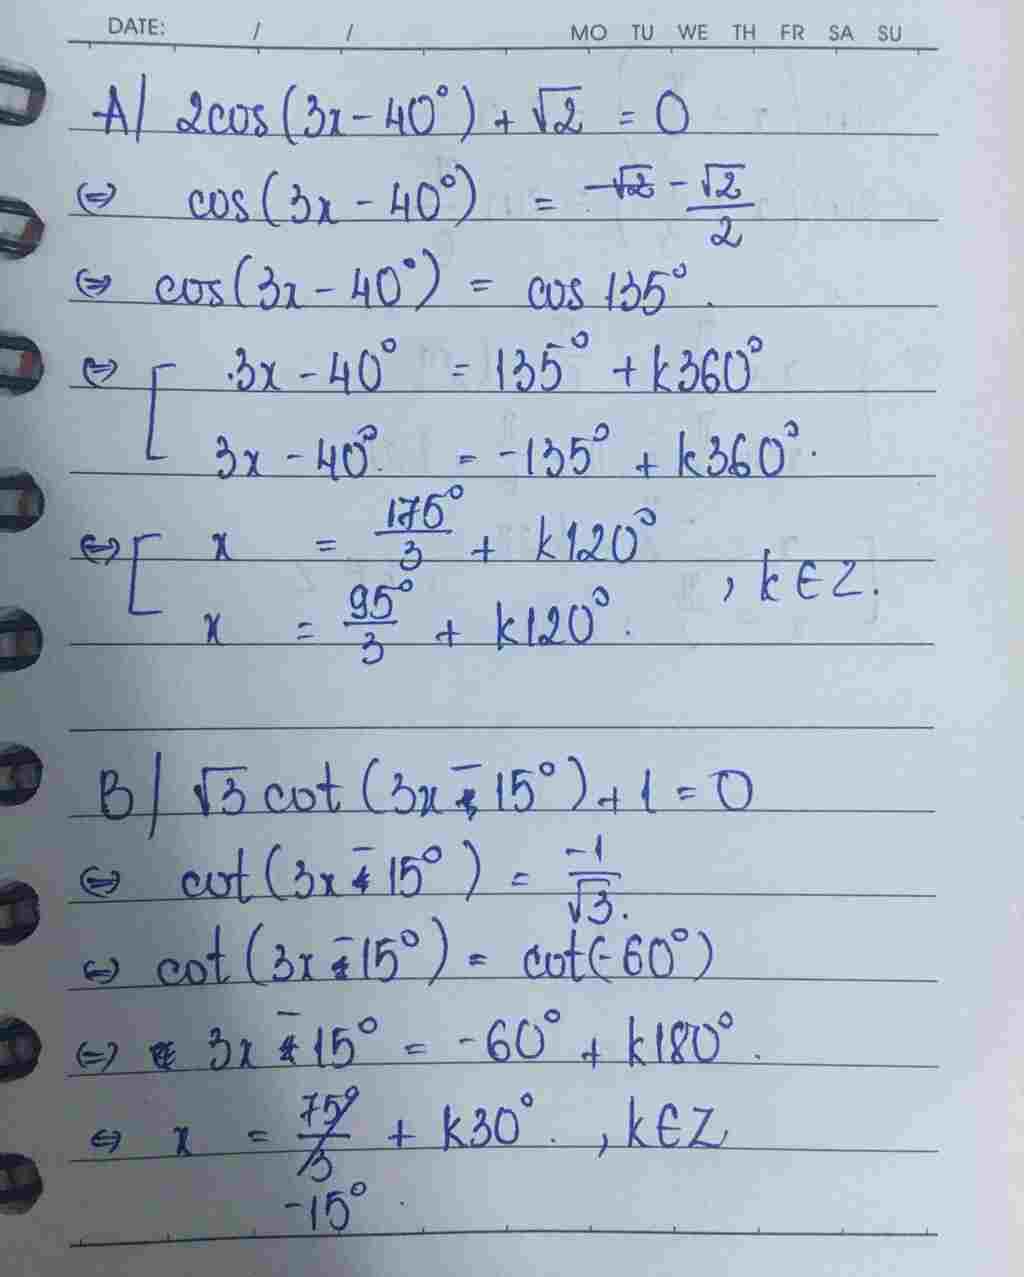 DATE: / / MO TU WE TH FR SA SU
A/ 2cos(3x - 40°) + √2 = 0
⇔ cos(3x - 40°) = -√2/2
⇔ cos(3x - 40°) = cos 135°.
⇔ [ 3x - 40° = 135° + k360°
3x - 40° = -135° + k360°.
⇔ [ x = 175°/3 + k120°
x = 95°/3 + k120°. , k ∈ Z.
B/ √3 cot(3x - 15°) + 1 = 0
⇔ cot(3x - 15°) = -1/√3.
⇔ cot(3x - 15°) = cot(-60°)
⇔ 3x - 15° = -60° + k180°.
⇔ x = 75°/3 + k30°. , k ∈ Z
-15°.